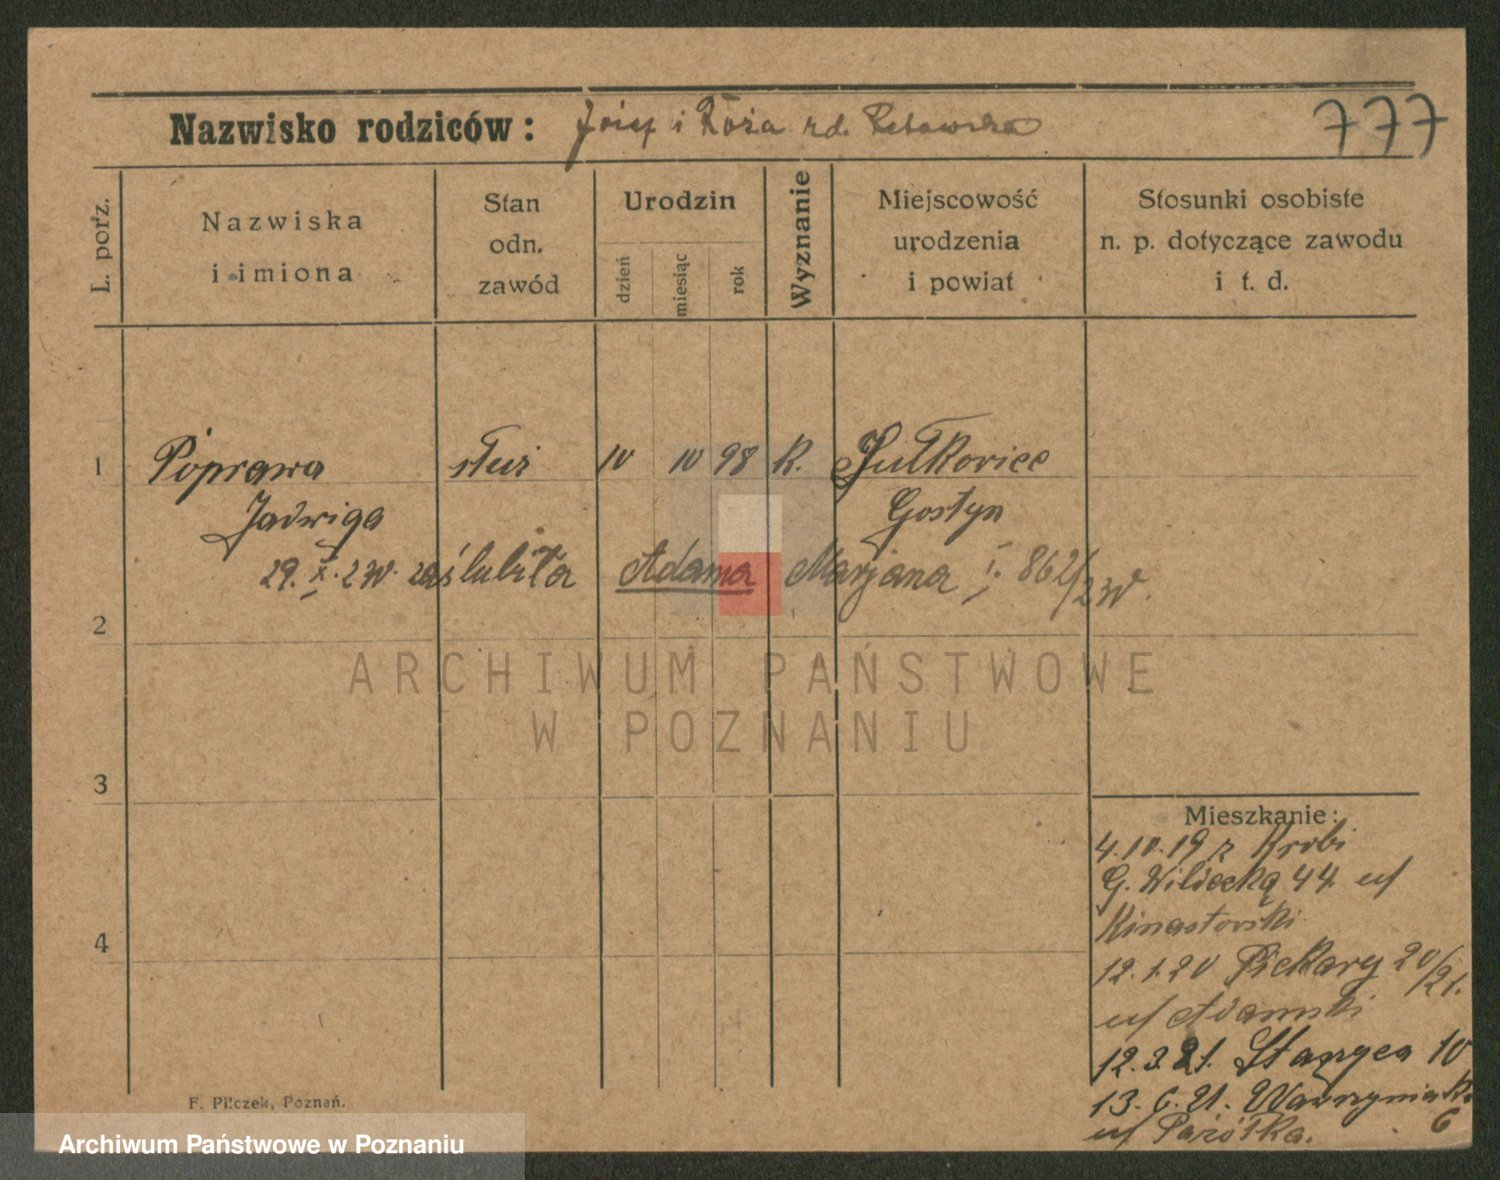 Nazwisko rodziców: Józef i Róża rd. 777
L. porz.
Nazwiska
i imiona
Stan
odn.
zawód
Urodzin
dzień
miesiąc
rok
Wyznanie
Miejscowość
urodzenia
i powiat
Stosunki osobiste
n. p. dotyczące zawodu
i t. d.
1 Poprawa służ 10 10 98 K.
Jadwiga Gostyn
29. X. 230. zaślubiła Adama Marjana I. 862/230.
2
ARCHIWUM PAŃSTWOWE
W POZNANIU
3
Mieszkanie:
4.10.19 z Krobi
G. Wildecką 44 u/
4
12.1.20 Piekary 20/21.
u/ Adamski
12.3.21.
13.6.21. Wawrzyniak. 6
u/
F. Pilczek, Poznań.
Archiwum Państwowe w Poznaniu